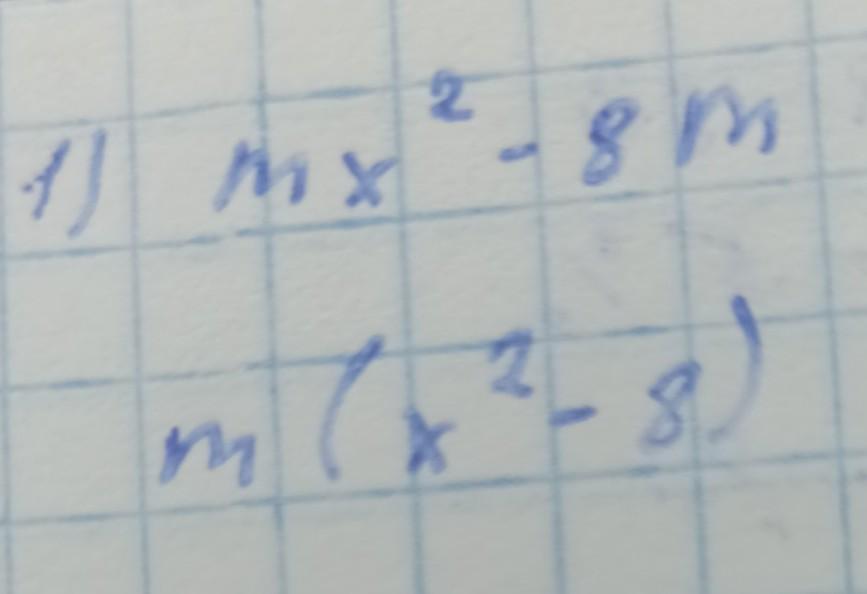 1) mx² - 8m
m(x² - 8)